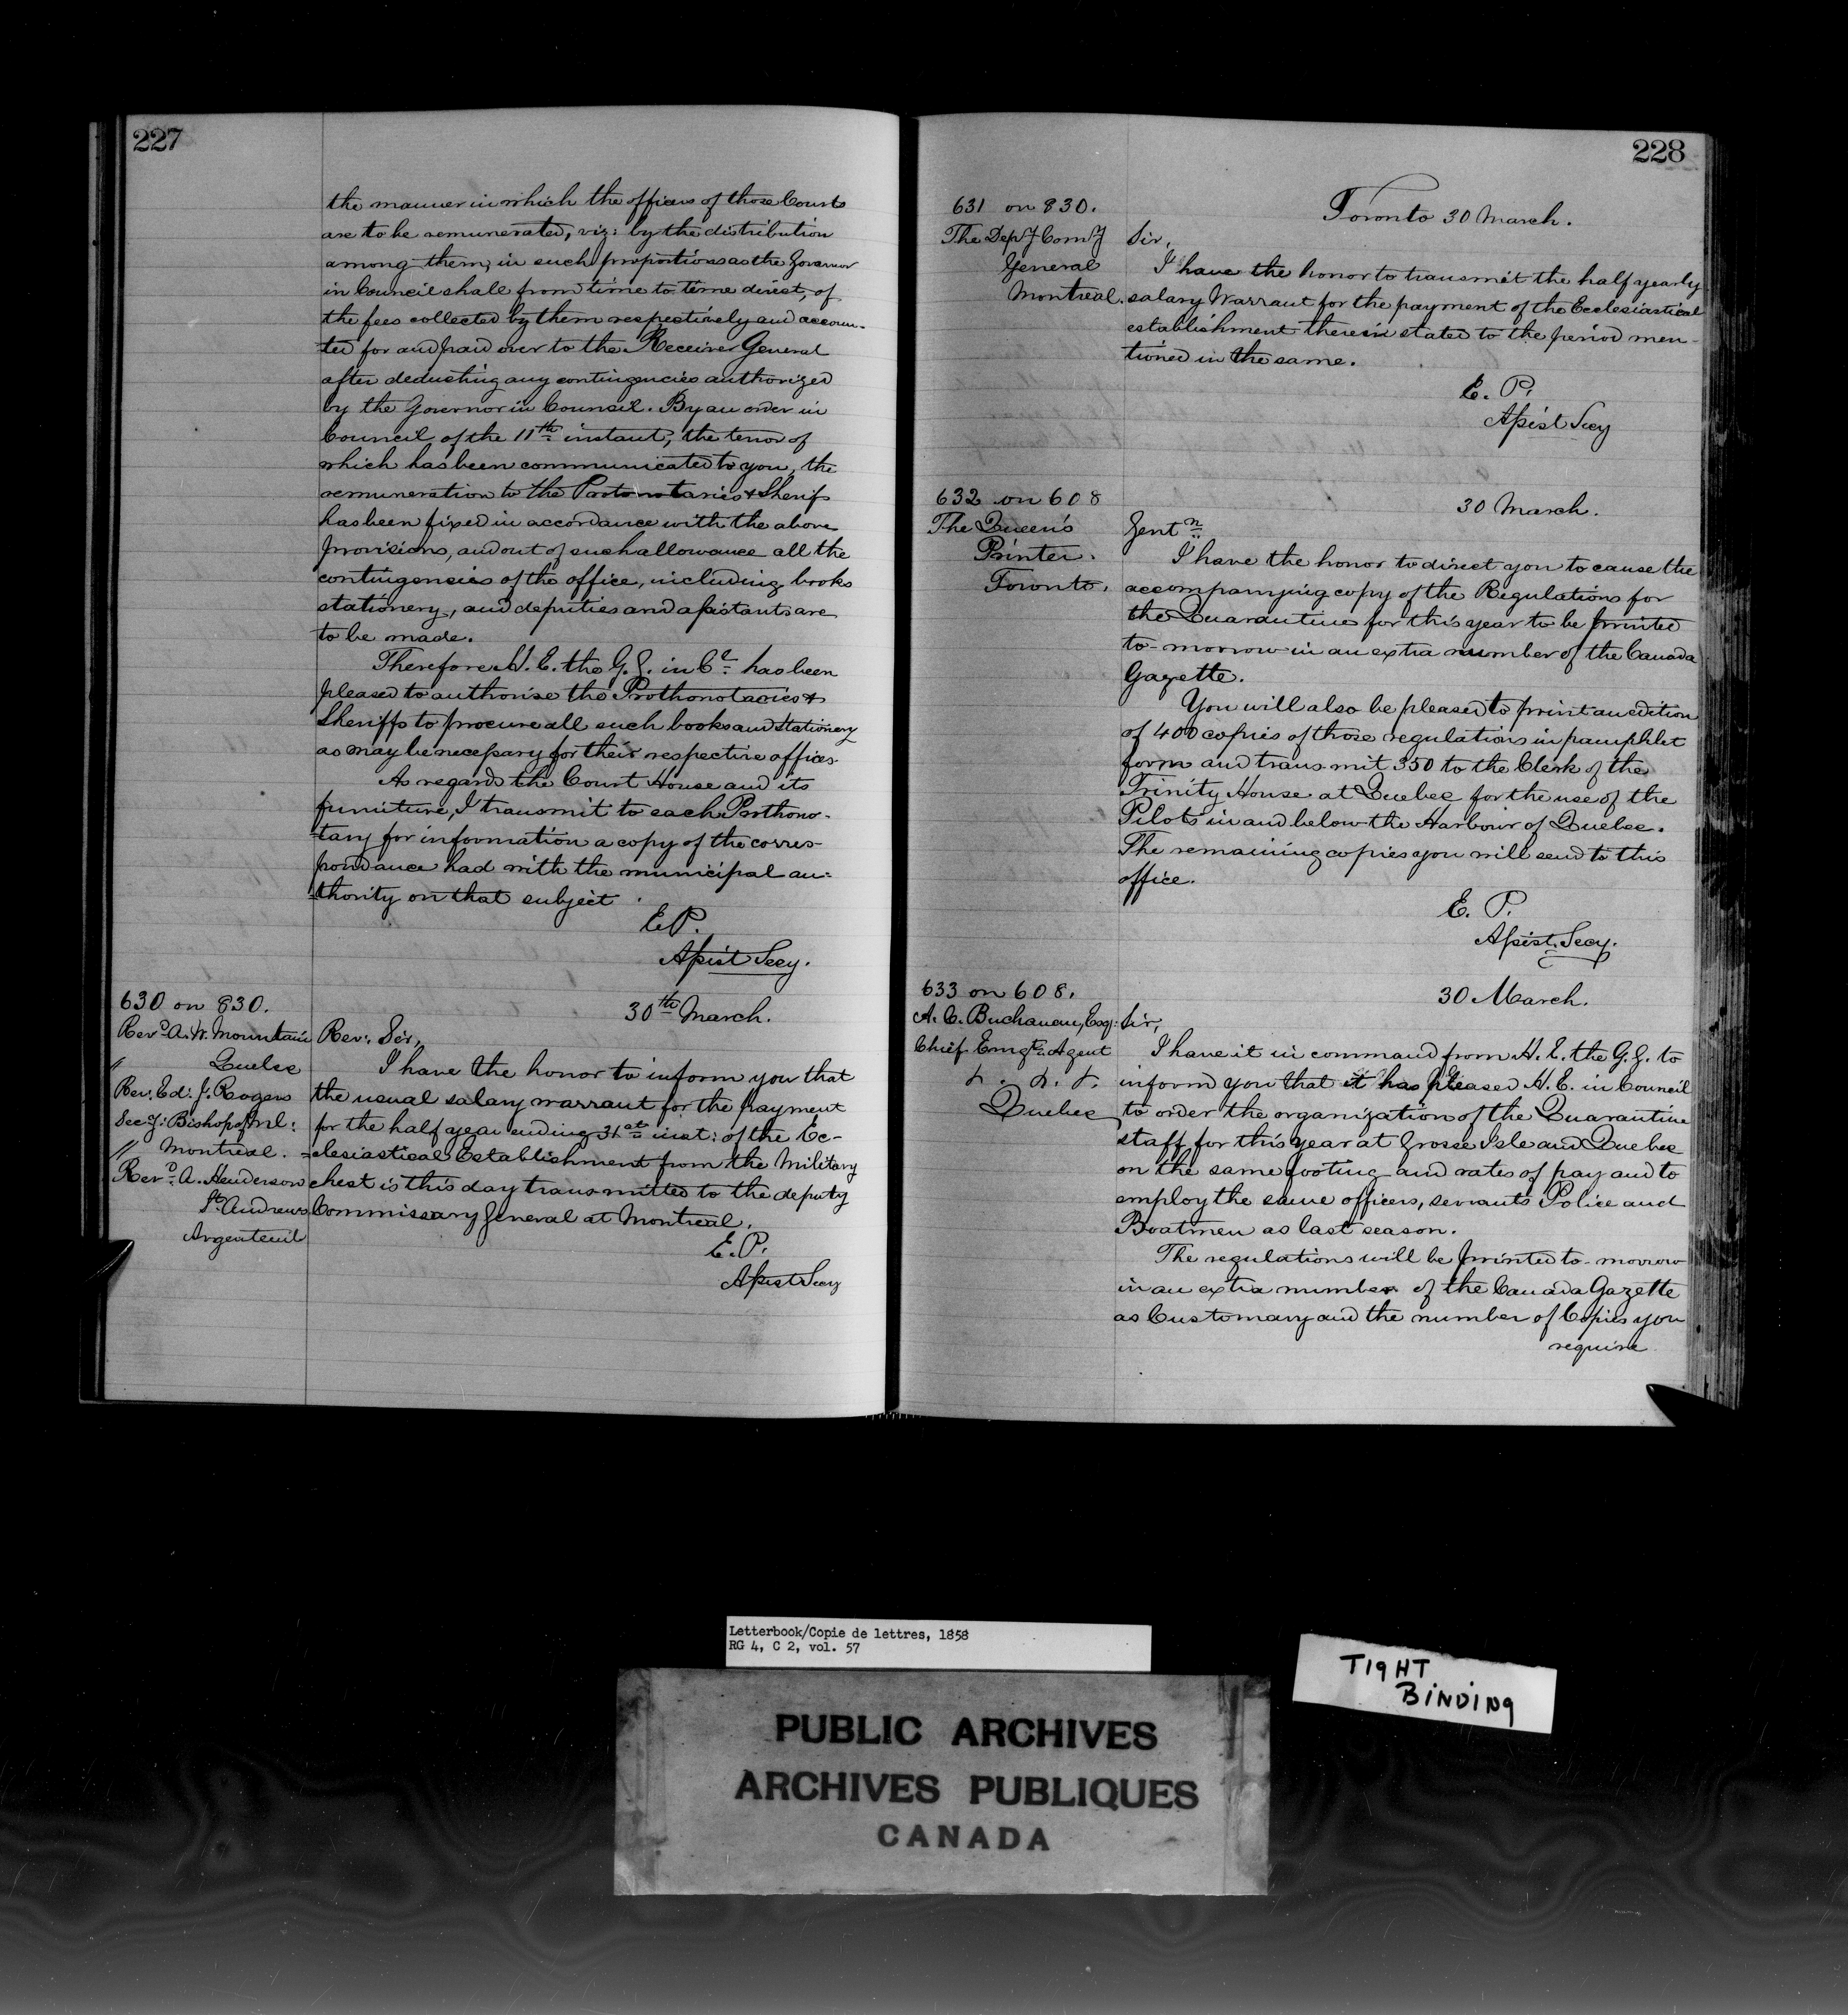 227
the manner in which the officers of those Courts
are to be remunerated, viz: by the distribution
among them, in such proportions as the Governor
in Council shall from time to time direct, of
the fees collected by them respectively and accoun-
ted for and paid over to the Receiver General
after deducting any contingencies authorized
by the Governor in Council. By an order in
Council of the 11th instant, the tenor of
which has been communicated to you, the
remuneration to the Protonotaries & Sherifs
has been fixed in accordance with the above
provisions, and out of such allowance all the
contingencies of the office, including books
stationery, and deputies and assistants are
to be made.
Therefore H. E. the G. G. in Cl has been
pleased to authorise the Prothonotaries &
Sheriffs to procure all such books and stationery
as may be necessary for their respective offices.
As regards the Court House and its
furniture, I transmit to each Prothono-
-tary for information a copy of the corres-
pondance had with the municipal au-
-thority on that subject.
E.P.
Assist Secy.
630 on 830.
30th March.
Revd A. W. Mountain
" Quebec
Rev. Ed: J: Rogers
Secy: Bishop of Ml:
" Montreal.
Revd. A. Henderson
St Andrews
Argenteuil
Rev: Sir,
I have the honor to inform you that
the usual salary warrant for the payment
for the half year ending 31st inst: of the Ec-
-clesiastical Establishment from the Military
chest is this day transmitted to the deputy
Commissary General at Montreal.
E.P.
Assist Secy
228
631 on 830.
Toronto 30 March.
The Depy Comy
General
Montreal.
Sir,
I have the honor to transmit the half yearly
salary Warrant for the payment of the Ecclesiastical
establishment therein stated to the period men-
tioned in the same.
E. P.
Assist Secy
632 on 608
30 March.
The Queen's
Printer.
Toronto.
Gentn
I have the honor to direct you to cause the
accompanying copy of the Regulations for
the Quarantine for this year to be printed
to-morrow in an extra number of the Canada
Gazette.
You will also be pleased to print an edition
of 400 copies of those regulations in pamphlet
form and transmit 350 to the Clerk of the
Trinity House at Quebec for the use of the
Pilots in and below the Harbour of Quebec.
The remaining copies you will send to this
office.
E. P.
Assist. Secy.
633 on 608.
30 March.
A. C. Buchanan, Esq:
Chief Emigt. Agent
Quebec
Sir,
I have it in command from H. E. the G. G. to
inform you that it has pleased H. E. in Council
to order the organization of the Quarantine
staff for this year at Grosse Isle and Quebec
on the same footing and rates of pay and to
employ the same officers, servants Police and
Boatmen as last season.
The regulations will be printed to-morrow
in an extra number of the Canada Gazette
as Customary and the number of Copies you
require
Letterbook/Copie de lettres, 1858
RG 4, C 2, vol. 57
TIGHT
BINDING
PUBLIC ARCHIVES
ARCHIVES PUBLIQUES
CANADA